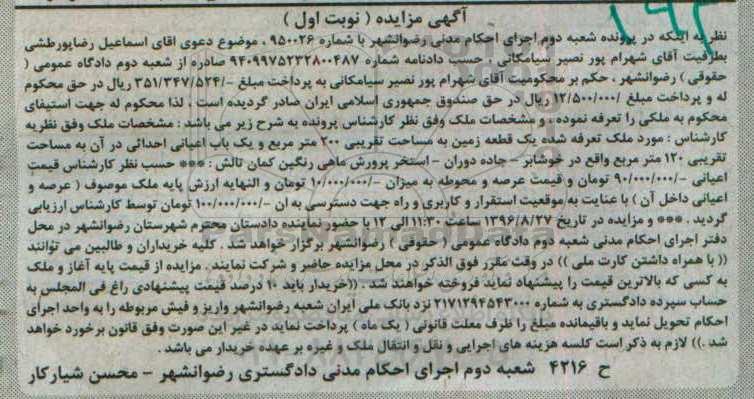 آگهی مزایده ( نوبت اول )
نظر به اینکه در پرونده شعبه دوم اجرای احکام مدنی رضوانشهر با شماره ۹۵۰۰۲۶ ، موضوع دعوی اقای اسماعیل رضاپورطشی
بطرفیت آقای شهرام پور نصیر سیامکانی ، حسب دادنامه شماره ۹۴۰۹۹۷۵۲۳۲۸۰۰۴۸۷ صادره از شعبه دوم دادگاه عمومی (
حقوقی ) رضوانشهر ، حکم بر محکومیت آقای شهرام پور نصیر سیامکانی به پرداخت مبلغ -/۳۵۱/۳۴۷/۵۲۴ ریال در حق محکوم
له و پرداخت مبلغ -/۱۲/۵۰۰/۰۰۰ ریال در حق صندوق جمهوری اسلامی ایران صادر گردیده است ، لذا محکوم له جهت استیفای
محکوم به ملکی را تعرفه نموده ، و مشخصات ملک وفق نظر کارشناس پرونده به شرح زیر می باشد : مشخصات ملک وفق نظریه
کارشناس : مورد ملک تعرفه شده یک قطعه زمین به مساحت تقریبی ۲۰۰ متر مربع و یک باب اعیانی احداثی در آن به مساحت
تقریبی ۱۲۰ متر مربع واقع در خوشابر - جاده دوران - استخر پرورش ماهی رنگین کمان تالش : *** حسب نظر کارشناس قیمت
اعیانی -/۹۰/۰۰۰/۰۰۰ تومان و قیمت عرصه و محوطه به میزان -/۱۰/۰۰۰/۰۰۰ تومان و النهایه ارزش پایه ملک موصوف ( عرصه و
اعیانی داخل آن ) با عنایت به موقعیت استقرار و کاربری و راه جهت دسترسی به ان -/۱۰۰/۰۰۰/۰۰۰ تومان توسط کارشناس ارزیابی
گردید . *** و مزایده در تاریخ ۱۳۹۶/۸/۲۷ ساعت ۱۱:۳۰ الی ۱۲ با حضور نماینده دادستان محترم شهرستان رضوانشهر در محل
دفتر اجرای احکام مدنی شعبه دوم دادگاه عمومی ( حقوقی ) رضوانشهر برگزار خواهد شد . کلیه خریداران و طالبین می توانند
(( با همراه داشتن کارت ملی )) در وقت مقرر فوق الذکر در محل مزایده حاضر و شرکت نمایند . مزایده از قیمت پایه آغاز و ملک
به کسی که بالاترین قیمت را پیشنهاد نماید فروخته خواهند شد . ((خریدار باید ۱۰ درصد قیمت پیشنهادی راغ فی المجلس به
حساب سپرده دادگستری به شماره ۲۱۷۱۲۹۴۵۴۳۰۰۰ نزد بانک ملی ایران شعبه رضوانشهر واریز و فیش مربوطه را به واحد اجرای
احکام تحویل نماید و باقیمانده مبلغ را ظرف مهلت قانونی ( یک ماه ) پرداخت نماید در غیر این صورت وفق قانون برخورد خواهد
شد .)) لازم به ذکر است کلسه هزینه های اجرایی و نقل و انتقال ملک و غیره بر عهده خریدار می باشد .
ح ۴۲۱۶ شعبه دوم اجرای احکام مدنی دادگستری رضوانشهر - محسن شیارکار